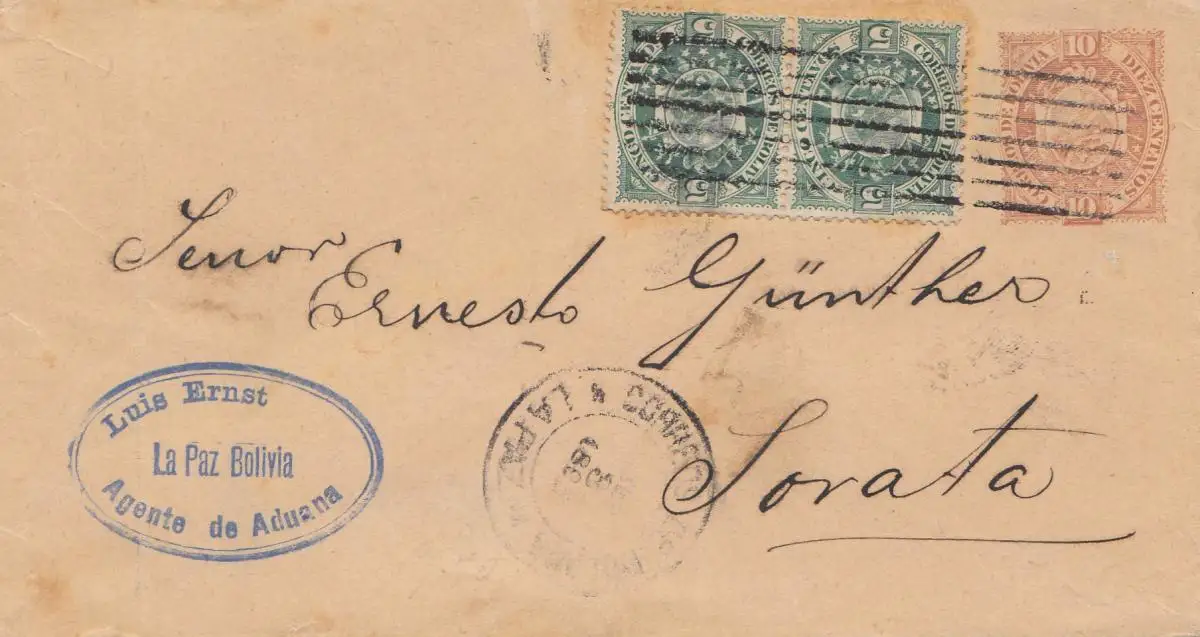 5 5
CINCO CENTAVOS CORREOS DE BOLIVIA
5 5
CINCO CENTAVOS CORREOS DE BOLIVIA
10
CORREOS DE BOLIVIA DIEZ CENTAVOS
10
Señor
Ernesto Günther
Sorata
Luis Ernst
La Paz Bolivia
Agente de Aduana
CORREOS
LA PAZ